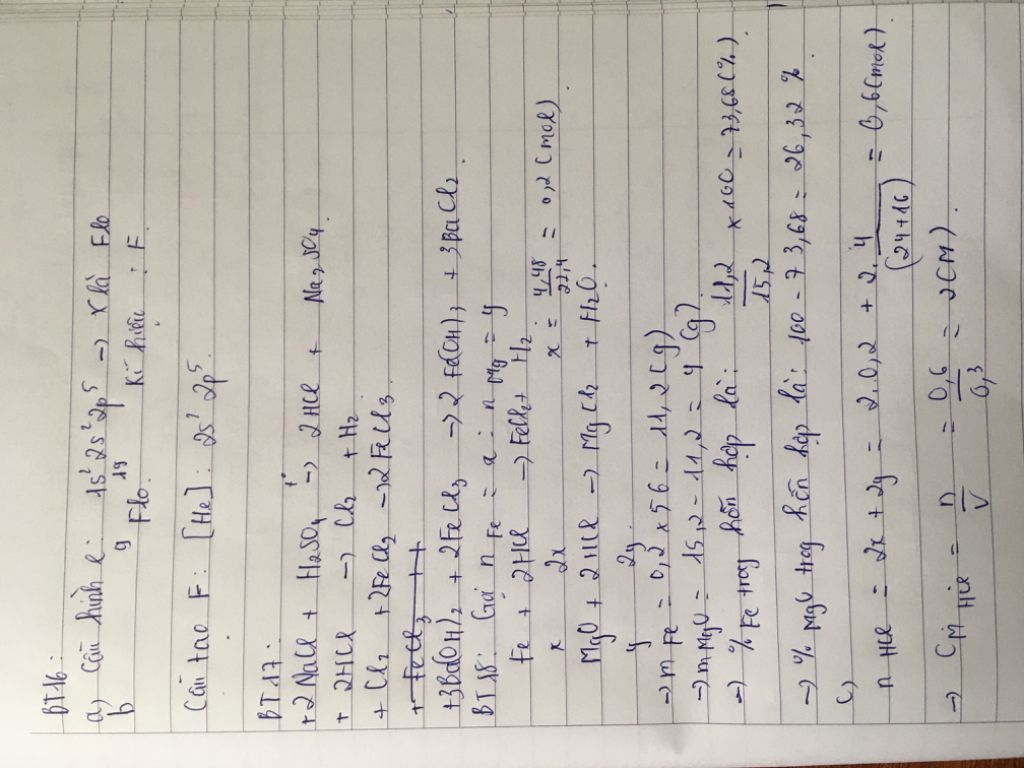 BT16:
a) Cấu hình e: 1s² 2s² 2p⁵ → X là Flo
b 9 Flo 19 Kí hiệu : F
Cấu tạo F: [He]: 2s² 2p⁵.
BT17:
+ 2NaCl + H₂SO₄ → 2HCl + Na₂SO₄
+ 2HCl → Cl₂ + H₂
+ Cl₂ + 2FeCl₂ → 2FeCl₃
+ FeCl₃ +
+ 3Ba(OH)₂ + 2FeCl₃ → 2Fe(OH)₃ + 3BaCl₂
BT18: Gọi n Fe = a : n Mg = y
Fe + 2HCl → FeCl₂ + H₂
x 2x x = 4,48/22,4 = 0,2 (mol)
MgO + 2HCl → MgCl₂ + H₂O.
y 2y
→ m Fe = 0,2 x 56 = 11,2 (g)
→ m MgO = 15,2 - 11,2 = 4 (g)
→ % Fe trog hỗn hợp là: 11,2/15,2 x 100 = 73,68 (%).
→ % MgO trog hỗn hợp là: 100 - 73,68 = 26,32 %
c)
n HCl = 2x + 2y = 2.0,2 + 2. 4/(24+16) = 0,6 (mol)
→ CM HCl = n/V = 0,6/0,3 = 2 (M).